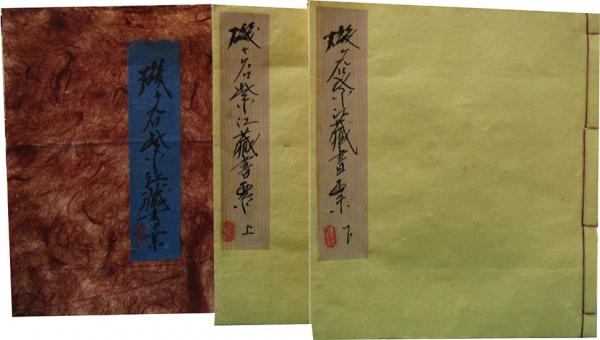 磯ヶ谷紫江藏書票
磯ヶ谷紫江藏書票 上
磯ヶ谷紫江藏書票 下